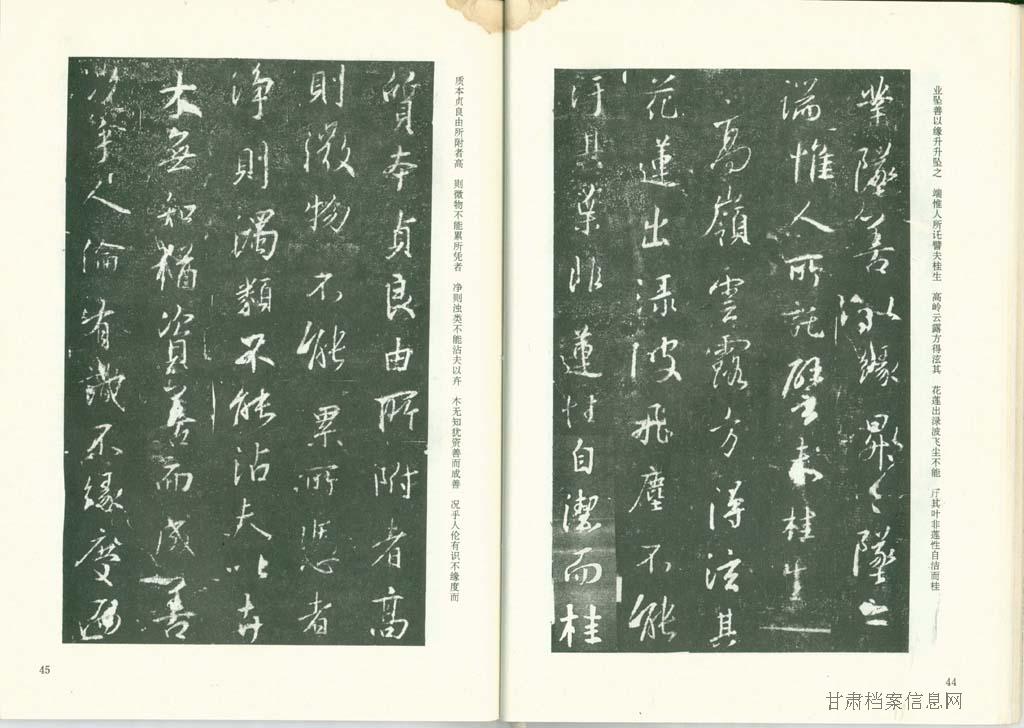 业坠善以缘升升坠之 端惟人所讬譬夫桂生 高岭云露方得泫其 花莲出渌波飞尘不能 汙其叶非莲性自洁而桂
業墜善以緣昇〻墜之
端惟人所託譬夫桂生
高嶺雲露方得泫其
花蓮出淥波飛塵不能
汙其葉非蓮性自潔而桂
44
质本贞良由所附者高 则微物不能累所凭者 净则浊类不能沾夫以卉 木无知犹资善而成善 况乎人伦有识不缘度而
質本貞良由所附者高
則微物不能累所憑者
淨則濁類不能沾夫以卉
木無知猶資善而成善
況乎人倫有識不緣慶而
45
甘肃档案信息网